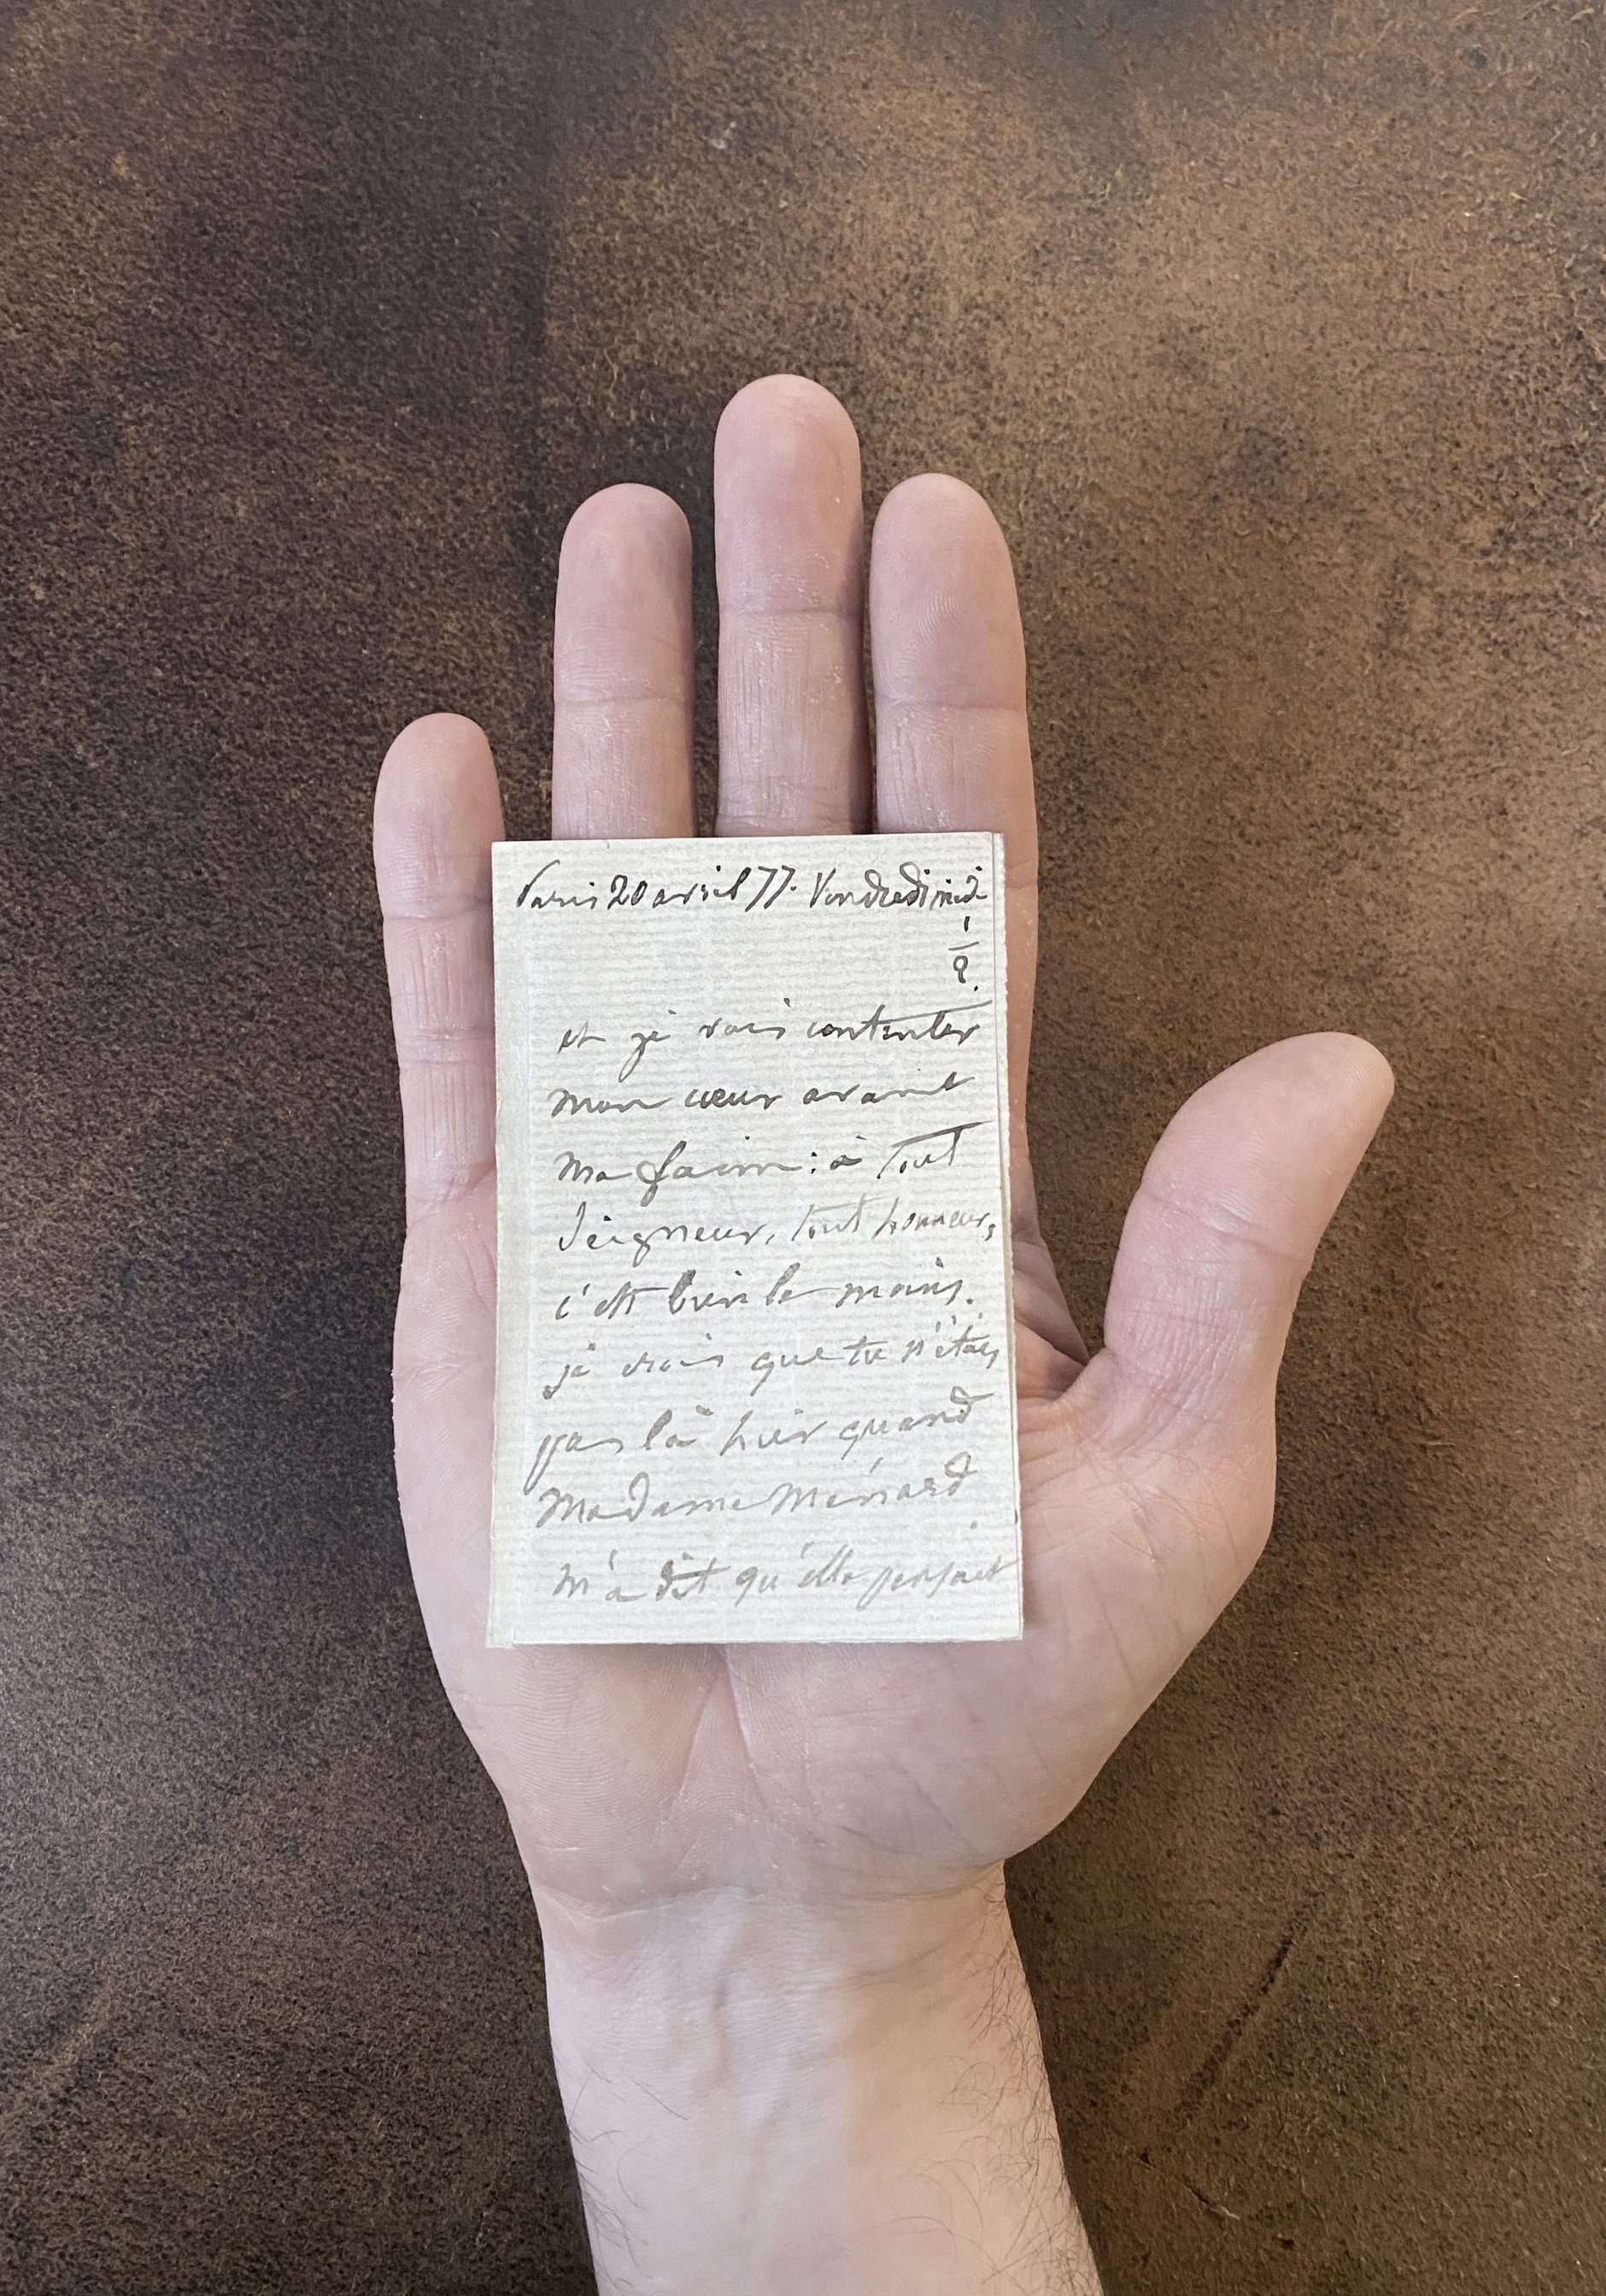 Paris 20 avril 77. Vendredi midi
1
—
2.
et je vais contenter
mon cœur avant
ma faim : à tout
Seigneur, tout honneur,
c'est bien le moins.
je crois que tu n'étais
pas là hier quand
Madame Ménard
m'a dit qu'elle pensait